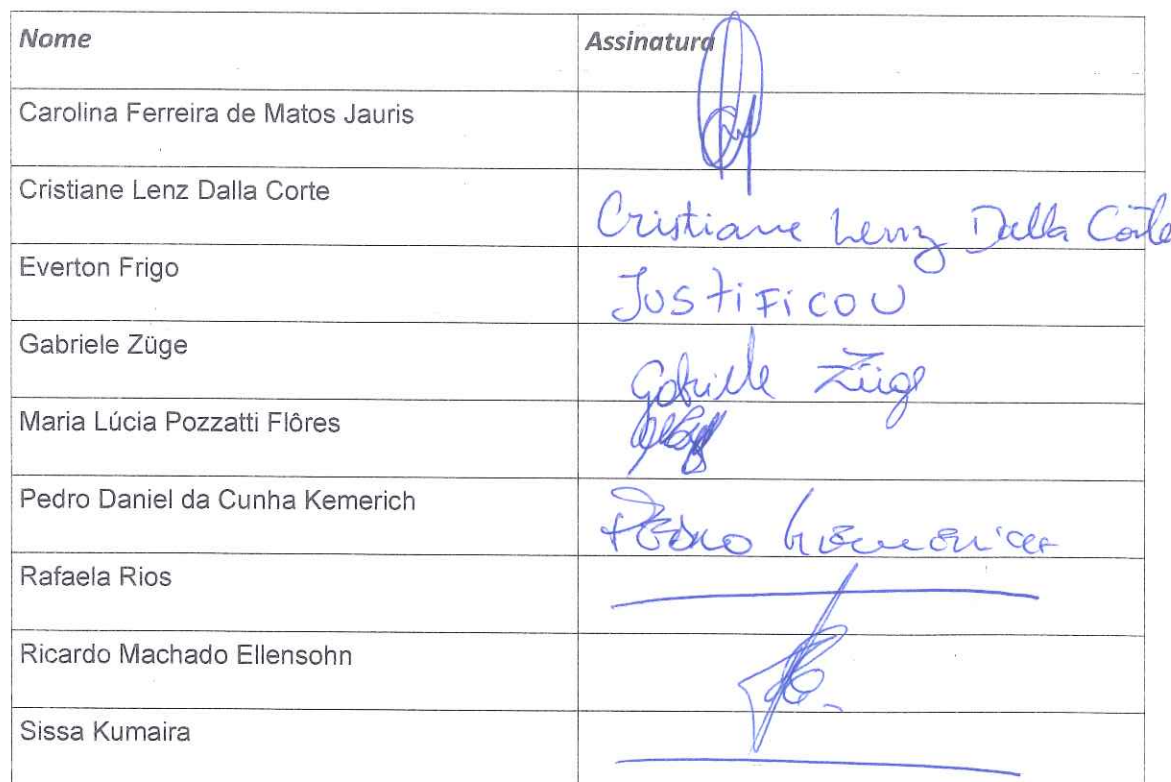 Nome Assinatura
Carolina Ferreira de Matos Jauris
Cristiane Lenz Dalla Corte Cristiane Lenz Dalla Côrte
Everton Frigo Justificou
Gabriele Züge Gabriele Züge
Maria Lúcia Pozzatti Flôres
Pedro Daniel da Cunha Kemerich Pedro
Rafaela Rios
Ricardo Machado Ellensohn
Sissa Kumaira